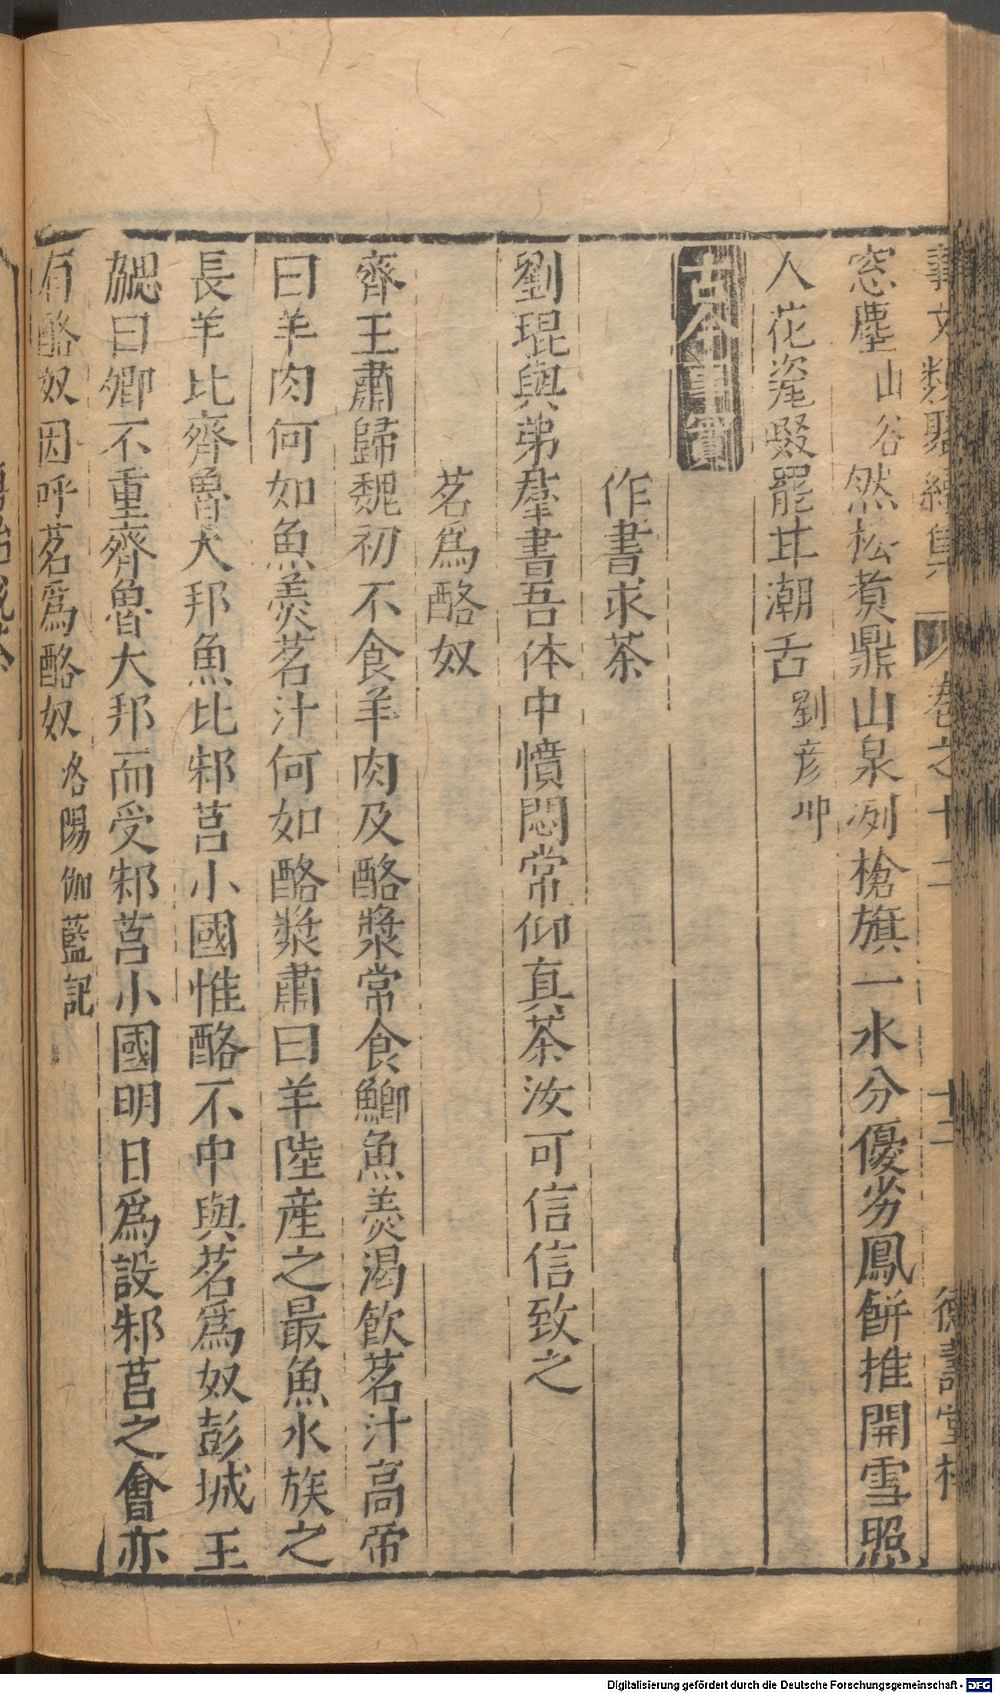 事文類聚續集 卷之十二 十二 德壽堂梓
窓塵山谷然松煑鼎山泉冽槍旗一水分優劣鳳餠推開雪照
人花瓷啜罷甘潮舌劉彦冲
古今事實
作書求茶
劉琨與弟羣書吾体中憤悶常仰真茶汝可信信致之
茗爲酪奴
齊王肅歸魏初不食羊肉及酪漿常食鯽魚羮渴飮茗汁高帝
曰羊肉何如魚羮茗汁何如酪漿肅曰羊陸産之最魚水族之
長羊比齊魯大邦魚比邾莒小國惟酪不中與茗爲奴彭城王
勰曰卿不重齊魯大邦而受邾莒小國明日爲設邾莒之會亦
有酪奴因呼茗爲酪奴洛陽伽藍記
Digitalisierung gefördert durch die Deutsche Forschungsgemeinschaft - DFG